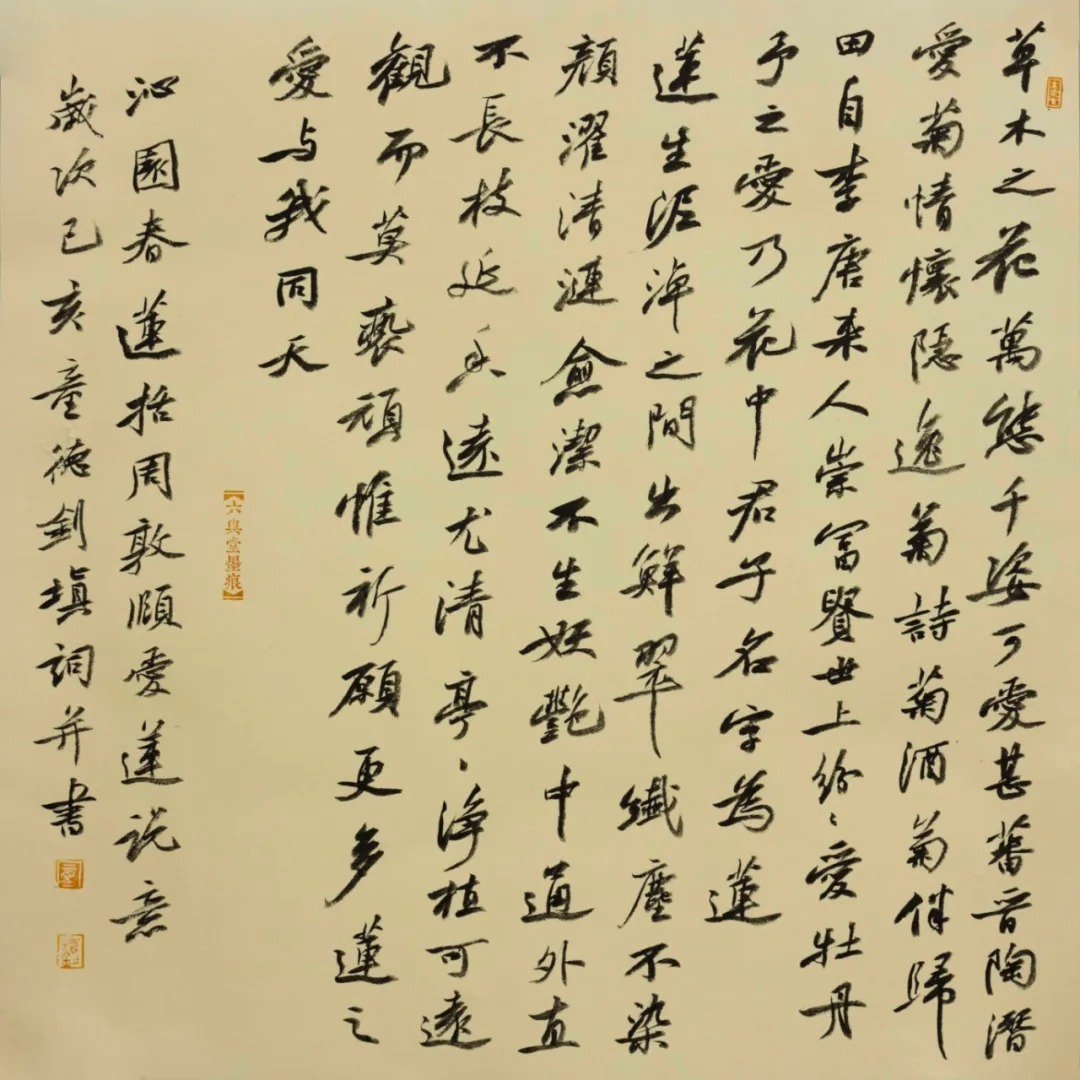 草木之花萬態千姿可愛甚蕃晉陶潛
愛菊情懷隱逸菊詩菊酒菊伴歸
田自李唐来人崇富貴世上紛〻愛牡丹
予之愛乃花中君子名字為蓮
蓮生泥淖之間出鮮翠纖塵不染
顏濯清漣愈潔不生妖艷中通外直
不長枝延香遠尤清亭〻淨植可遠
觀而莫褻頑惟祈願更多蓮之
愛与我同天
【六堂墨痕】
沁園春 蓮 括周敦頤愛蓮說意
歲次己亥童德釗填詞并書